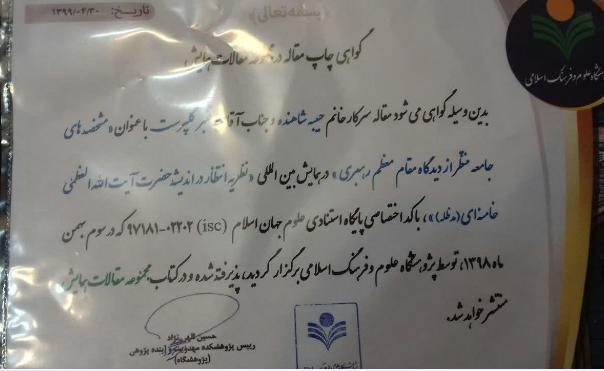 بسمه تعالی
تاریخ: ۱۳۹۹/۰۴/۳۰
گواهی چاپ مقاله در مجموعه مقالات همایش
پژوهشگاه علوم و فرهنگ اسلامی
بدین وسیله گواهی می شود مقاله سرکار خانم حبیبه شاهنده و جناب آقای با عنوان «مشخصه های
جامعه منتظر از دیدگاه مقام معظم رهبری» در همایش بین المللی «نظریه انتظار در اندیشه حضرت آیت الله العظمی
خامنه ای (مدظله)»، با کد اختصاصی پایگاه استنادی علوم جهان اسلام (isc) ۹۷۱۸۱-۰۲۲۰۲ که در سوم بهمن
ماه ۱۳۹۸، توسط پژوهشگاه علوم و فرهنگ اسلامی برگزار گردید، پذیرفته شده و در کتاب مجموعه مقالات همایش
منتشر خواهد شد.
حسین الهی نژاد
رییس پژوهشکده مهدویت و آینده پژوهی
(پژوهشگاه)